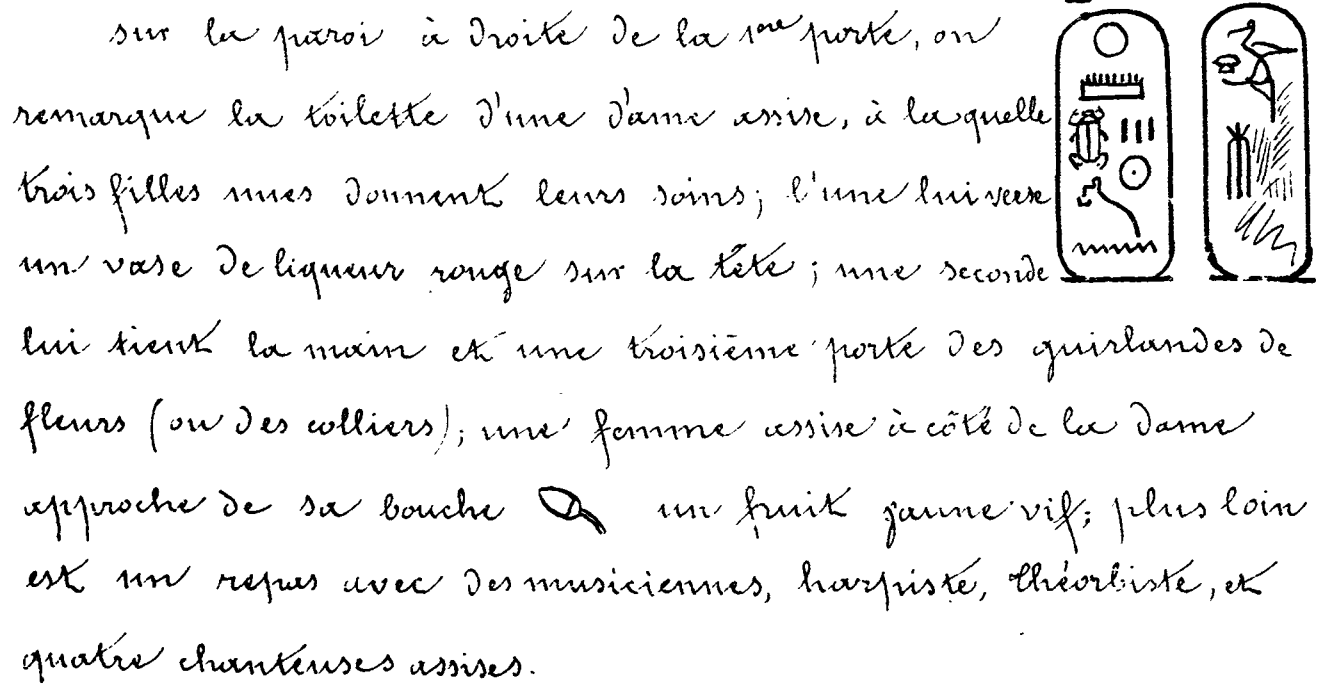 sur la paroi à droite de la 1ère porte, on
remarque la toilette d'une dame assise, à laquelle
trois filles nues donnent leurs soins; l'une lui verse
un vase de liqueur rouge sur la tête; une seconde
lui tient la main et une troisième porte des guirlandes de
fleurs (ou des colliers); une femme assise à côté de la dame
approche de sa bouche un fruit jaune vif; plus loin
est un repas avec des musiciennes, harpiste, théorbiste, et
quatre chanteuses assises.